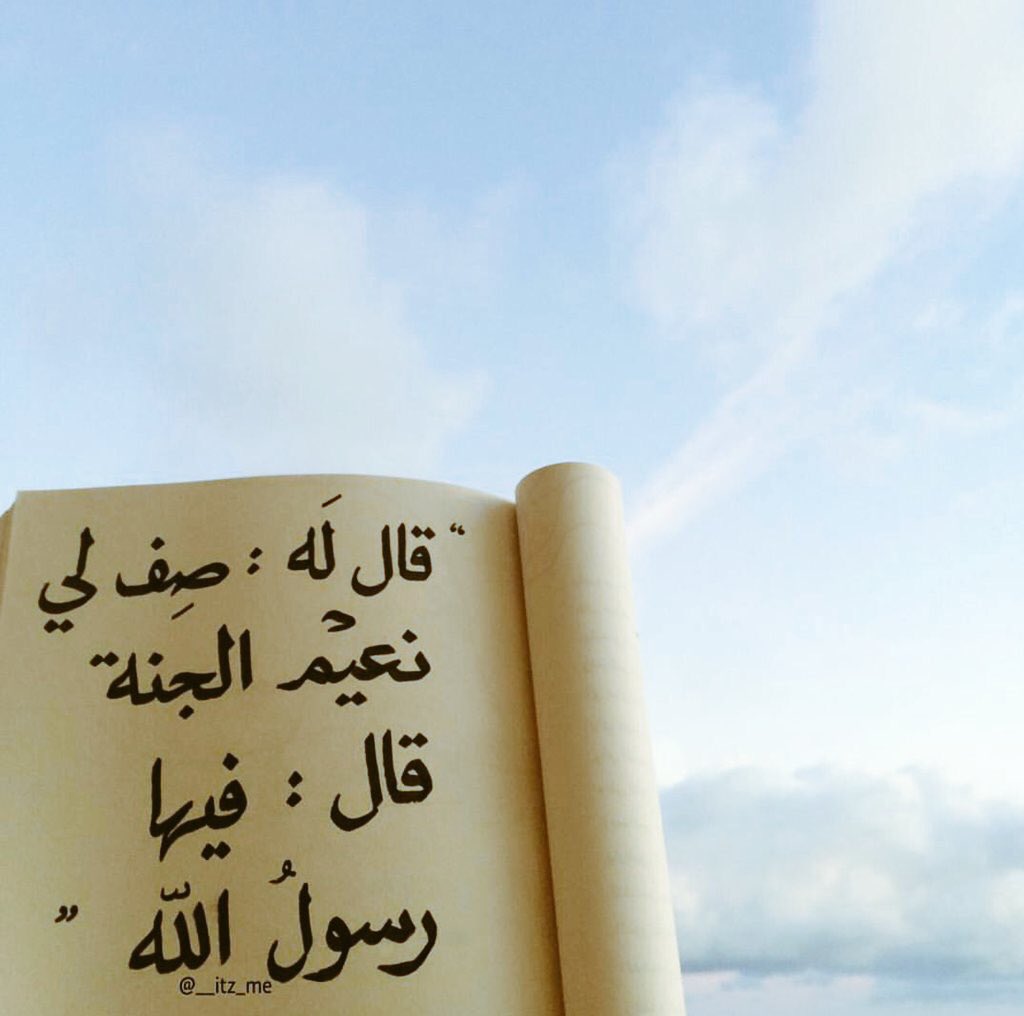 “ قال لَه : صِف لي
نعيْم الجنة
قال : فيها
رسولُ اللّه ”
@__itz_me